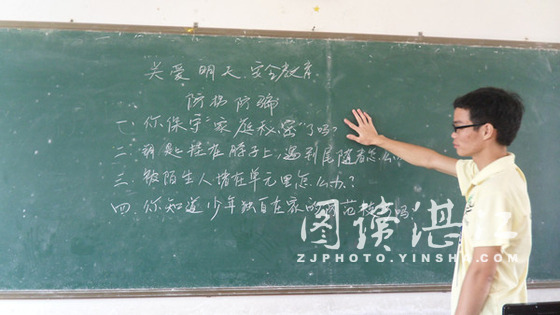 关爱明天 安全教育
防拐防骗
一、你保守“家庭秘密”了吗?
二、钥匙挂在脖子上,遇到尾随者怎么
三、被陌生人堵在单元里怎么办?
四、你知道少年独自在家的防范技巧吗?
图读湛江
ZJPHOTO.YINSHA